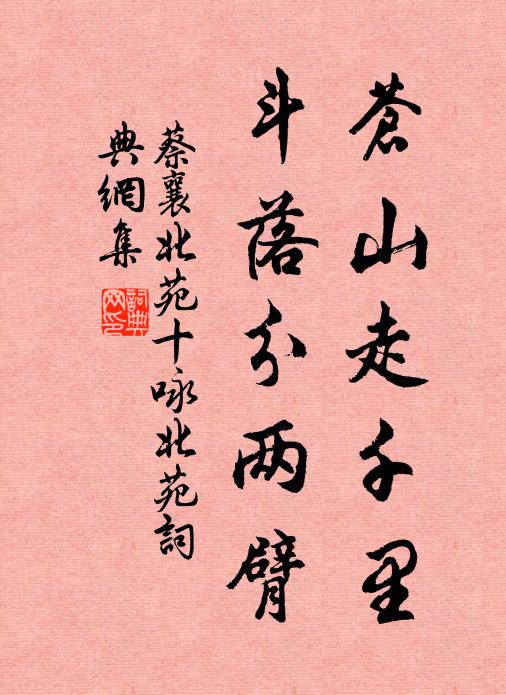 蒼山走千里
斗落分两臂
蔡襄北苑十咏北苑詞
典網集
詞典
网印